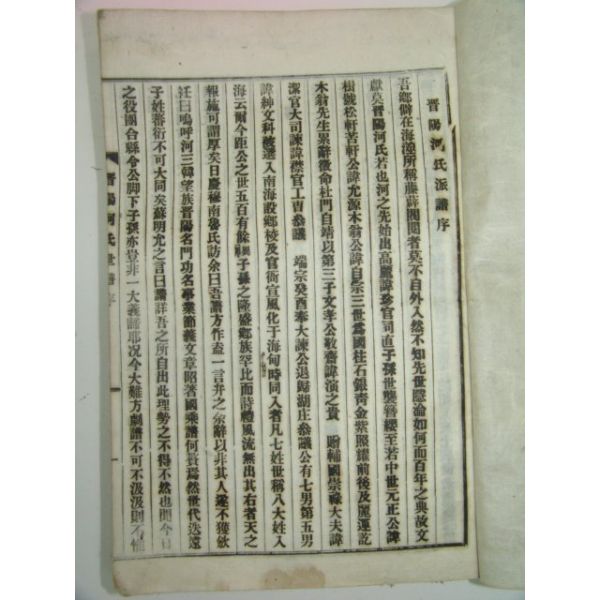 晋陽河氏派譜序
吾鄉僻在海濱所稱藤薜閥閱者莫不自外入然不知先世隱淪如何而百年之典故文
獻莫晋陽河氏若也河之先始出高麗諱珍官司直子孫世襲簪纓至若中世元正公諱
楫號松軒苦軒公諱允源木翁公諱自宗三世爲國柱石銀靑金紫照耀前後及麗運訖
木翁先生累辭徵命杜門自靖以第三子文孝公敬齋諱演之貴 贈輔國崇祿大夫諱
潔官大司諫諱襟官工曹叅議 端宗癸酉奉大諫公退歸湖庄叅議公有七男第五男
諱紳文科被選入南海設鄕校及官衙宣風化于海甸時同入者凡七姓世稱八大姓入
海云爾今距公之世五百有餘 子孫之隆盛鄕族罕比而詩禮風流無出其右者天之
報施可謂厚矣日慶穆南魯氏訪余曰吾譜方作盍一言弁之余辭以非其人遂不獲敘
汪曰嗚呼河三韓望族晋陽名門功名事業節義文章昭著國乘譜何贅焉然世代迭遠
子姓蕃衍不可大同矣蘇明允之言曰譜詳吾之所自出此理勢之不得不然也 今
之役團合縣令公脚下子孫亦豈非一大義譜耶况今大難方劇譜不可不汲汲則不
晋陽河氏世譜 序